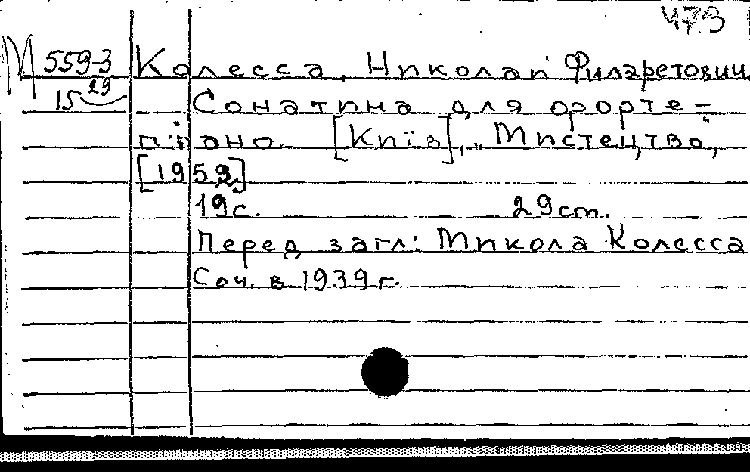 473
М 559-3 Колесса, Николай Филаретович
29
15 Сонатина для форте-
піано. [Київ], "Мистецтво,
[1959]
19с. 29ст.
Перед загл: Микола Колесса
Соч. в 1939г.